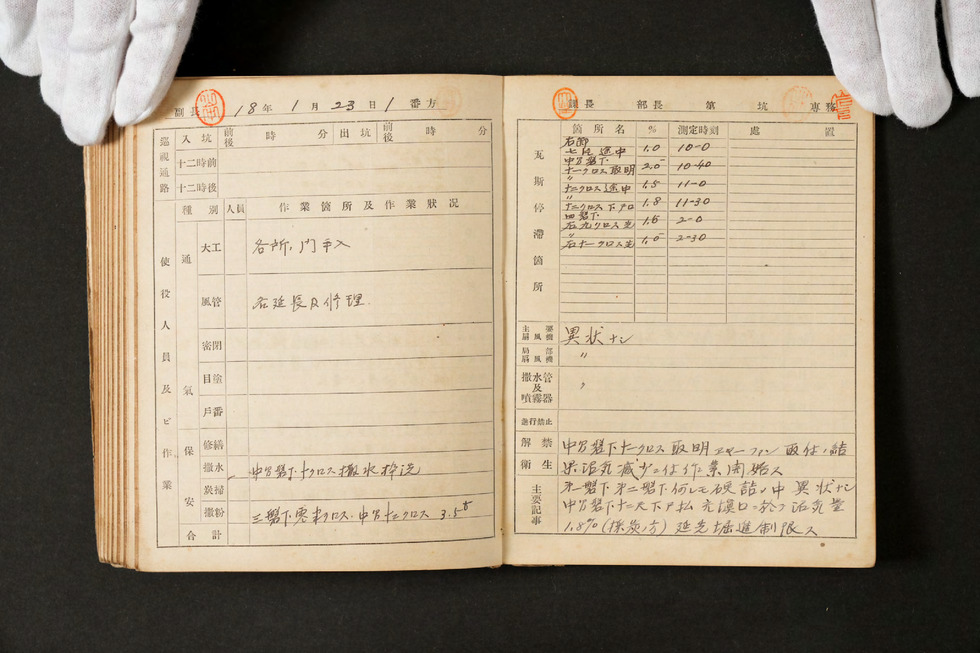 副長 18年 1月 23日 1番方
巡視通路 入坑 前後 時 分 出坑 前後 時 分
十二時前
十二時後
使役人員及ビ作業 種別 人員 作業箇所及作業状况
通氣 大工 各所、門手入
風管 各延長及修理.
密閉
目塗
戸番
保安 修繕
撒水 中官盤下十クロス撒水粋洗
炭掃
撒粉 三盤下零半クロス、中官十二クロス 3.5
合計
副長 部長 第 坑 専務
瓦斯停滞箇所 箇所名 % 測定時刻 處置
右卸
七片途中 1.0 10-0
中官盤下
十一クロス取明 2.0 10-40
〃
十二クロス途中 1.5 11-0
〃
十二クロス下戸口 1.8 11-30
四盤下
右九クロス先 1.5 2-0
〃
右十一クロス先 1.5 2-30
主要扇風機 異状ナシ
局部扇風機 〃
撒水管及噴霧器 〃
進行禁止
解禁 中官盤下十一クロス取明 エヤーファン 取付ノ結
衛生 果沼気減少ニ付作業開始ス
主要記事 第一盤下第二盤下何レモ硬詰ノ中異状ナシ
中官盤下十二尺下戸払充填口ニ於テ沼気量
1.8%(採炭ノ方) 延先掘進制限ス